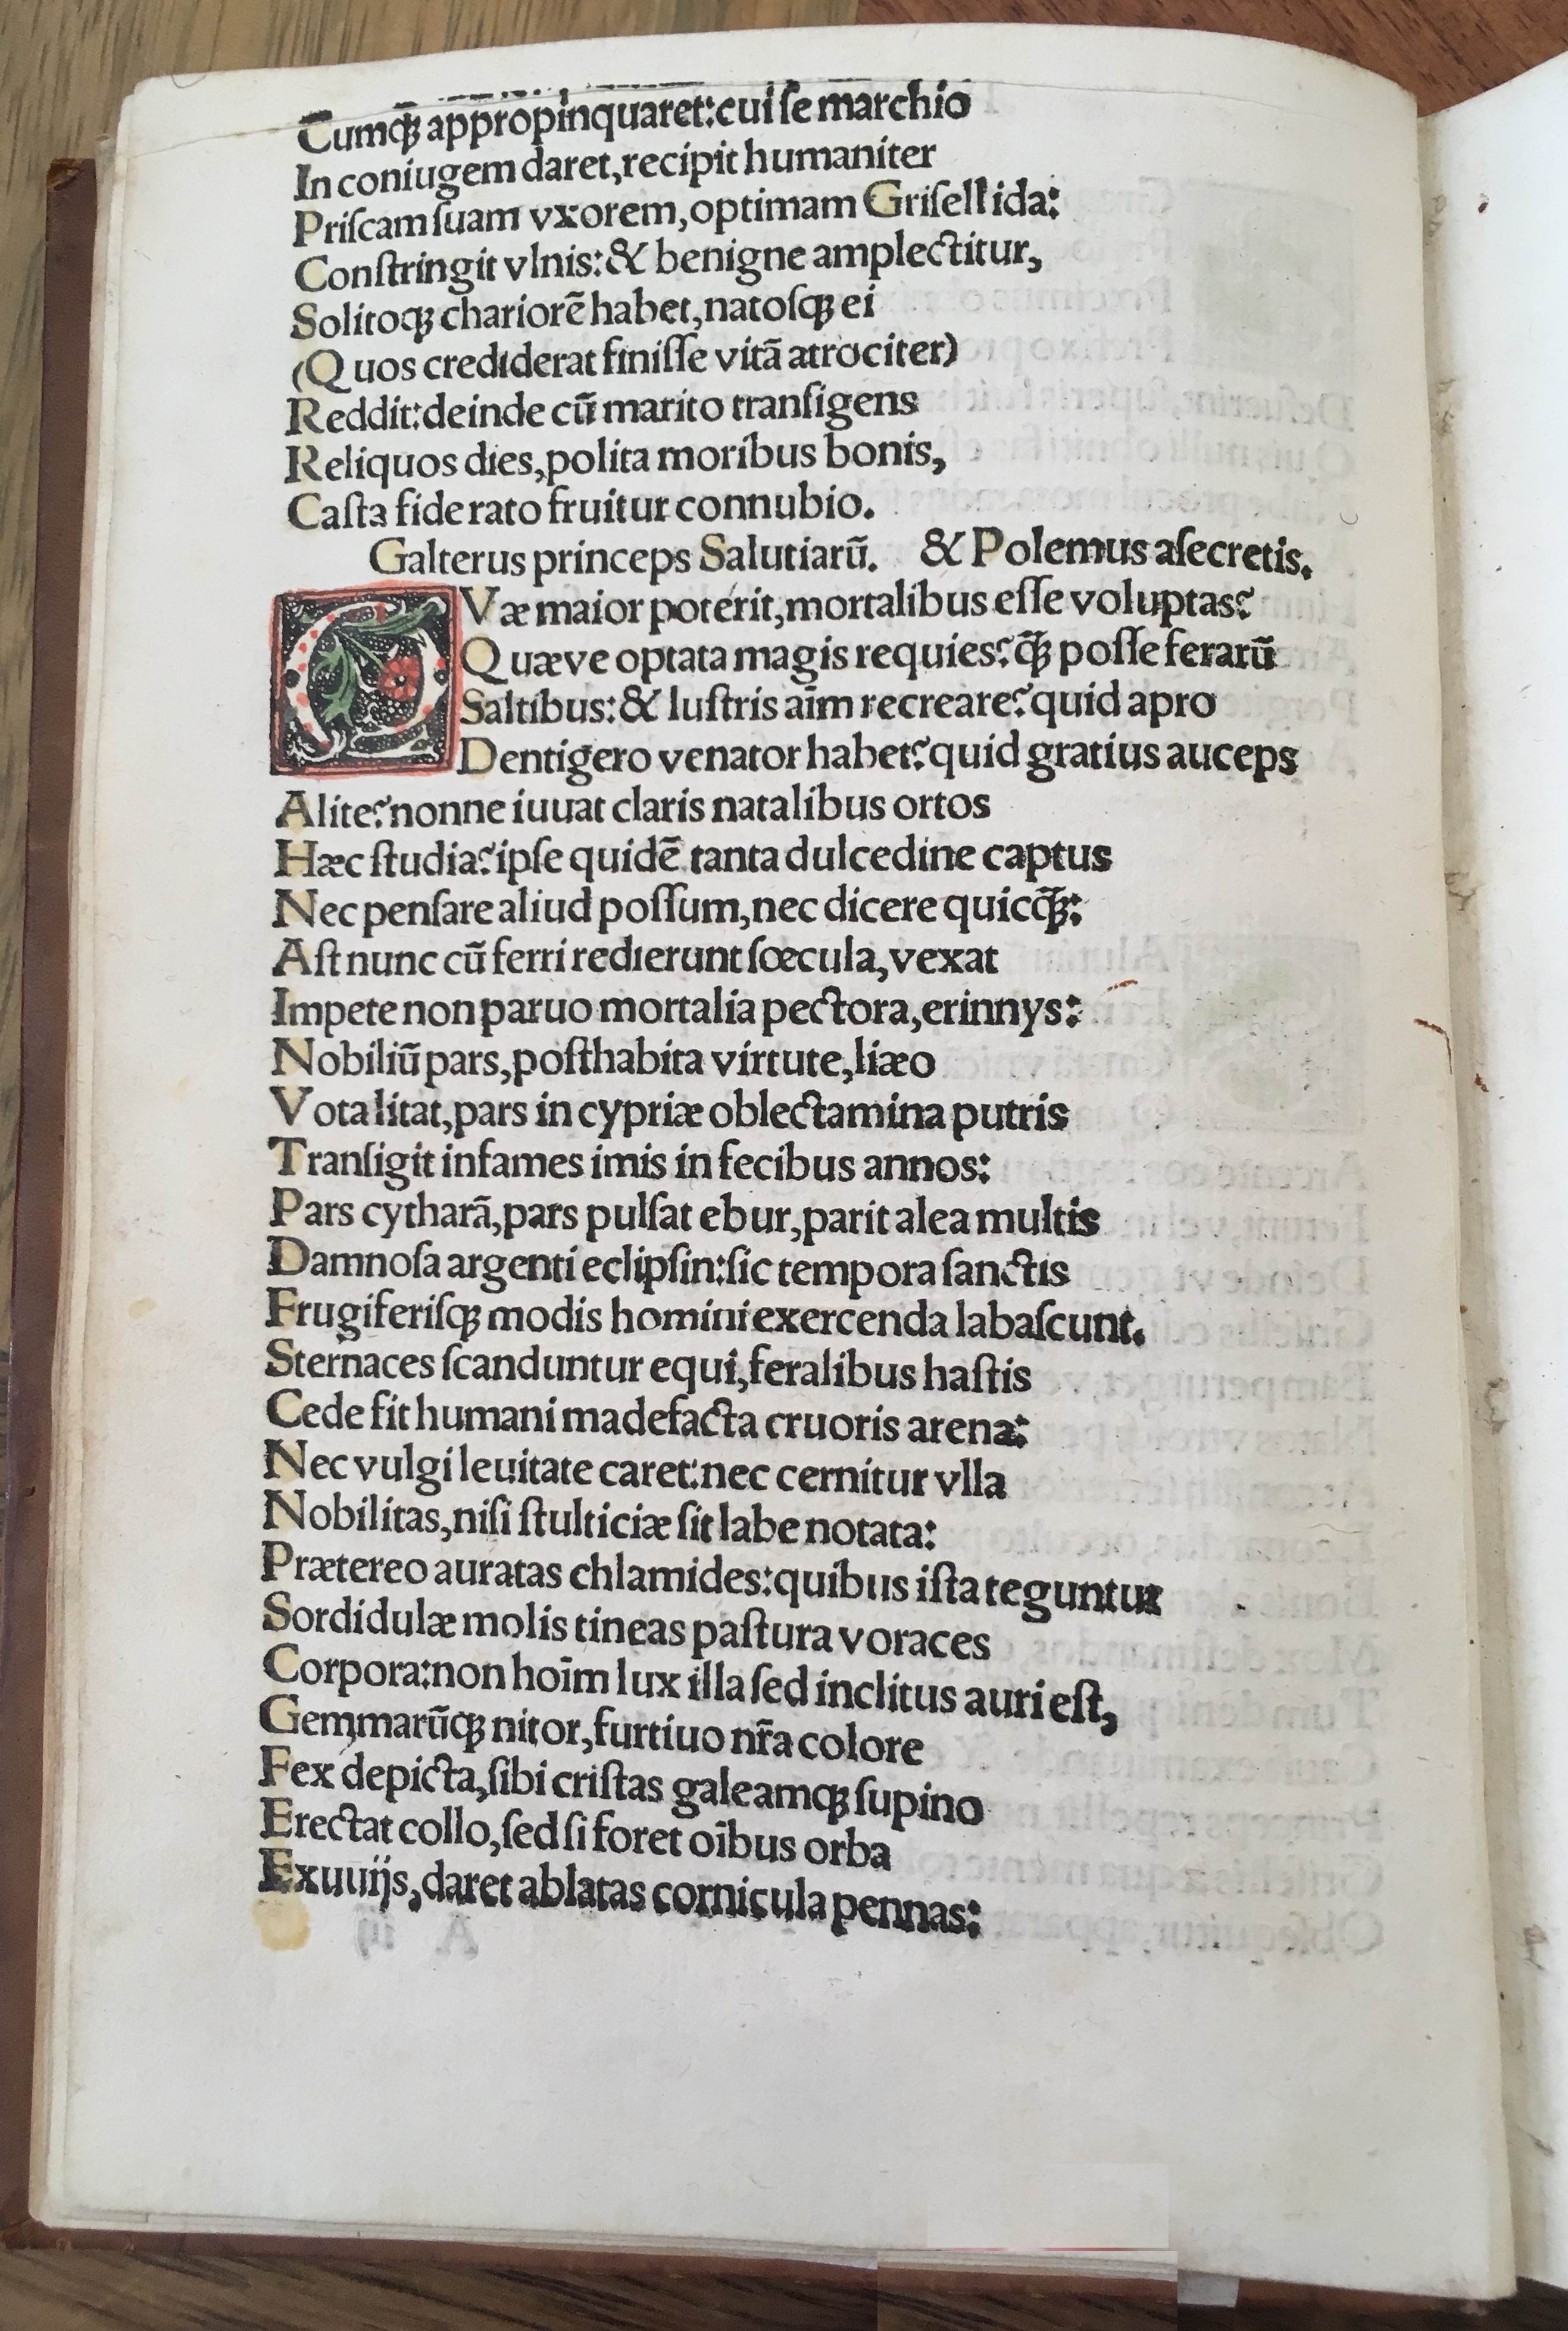 Cumqꝫ̄ appropinquaret:cui ſe marchio
In coniugem daret,recipit humaniter
Priſcam ſuam vxorem,optimam Griſellida:
Conſtringit vlnis:& benigne amplectitur,
Solitoqꝫ chariorē habet,natoſqꝫ ei
(Quos crediderat finiſſe vitā atrociter)
Reddit:deinde cū marito tranſigens
Reliquos dies,polita moribus bonis,
Caſta fide rato fruitur connubio.
Galterus princeps Salutiarū. & Polemus aſecretis.
QVæ maior poterit,mortalibus eſſe voluptas?
Quæve optata magis requies?qꝫ̄ poſſe ferarū
Saltibus:& luſtris aīm recreare?quid apro
Dentigero venator habet?quid gratius auceps
Alite?nonne iuuat claris natalibus ortos
Hæc ſtudia?ipſe quidē tanta dulcedine captus
Nec penſare aliud poſſum,nec dicere quicqꝫ̄:
Aſt nunc cū ferri redierunt ſœcula,vexat
Impete non paruo mortalia pectora,erinnys:
Nobiliū pars,poſthabita virtute,liæo
Vota litat,pars in cypriæ oblectamina putris
Tranſigit infames imis in fecibus annos:
Pars cytharā,pars pulſat ebur,parit alea multis
Damnoſa argenti eclipſin:ſic tempora ſanctis
Frugiferiſqꝫ modis homini exercenda labaſcunt.
Sternaces ſcanduntur equi,feralibus haſtis
Cede fit humani madefacta cruoris arena:
Nec vulgi leuitate caret:nec cernitur vlla
Nobilitas,niſi ſtulticiæ ſit labe notata:
Prætereo auratas chlamides:quibus iſta teguntur
Sordidulæ molis tineas paſtura voraces
Corpora:non hoīm lux illa ſed inclitus auri eſt,
Gemmarūqꝫ nitor,furtiuo nr̄a colore
Fex depicta,ſibi criſtas galeamqꝫ ſupino
Erectat collo,ſed ſi foret oībus orba
Exuuijs,daret ablatas cornicula pennas: